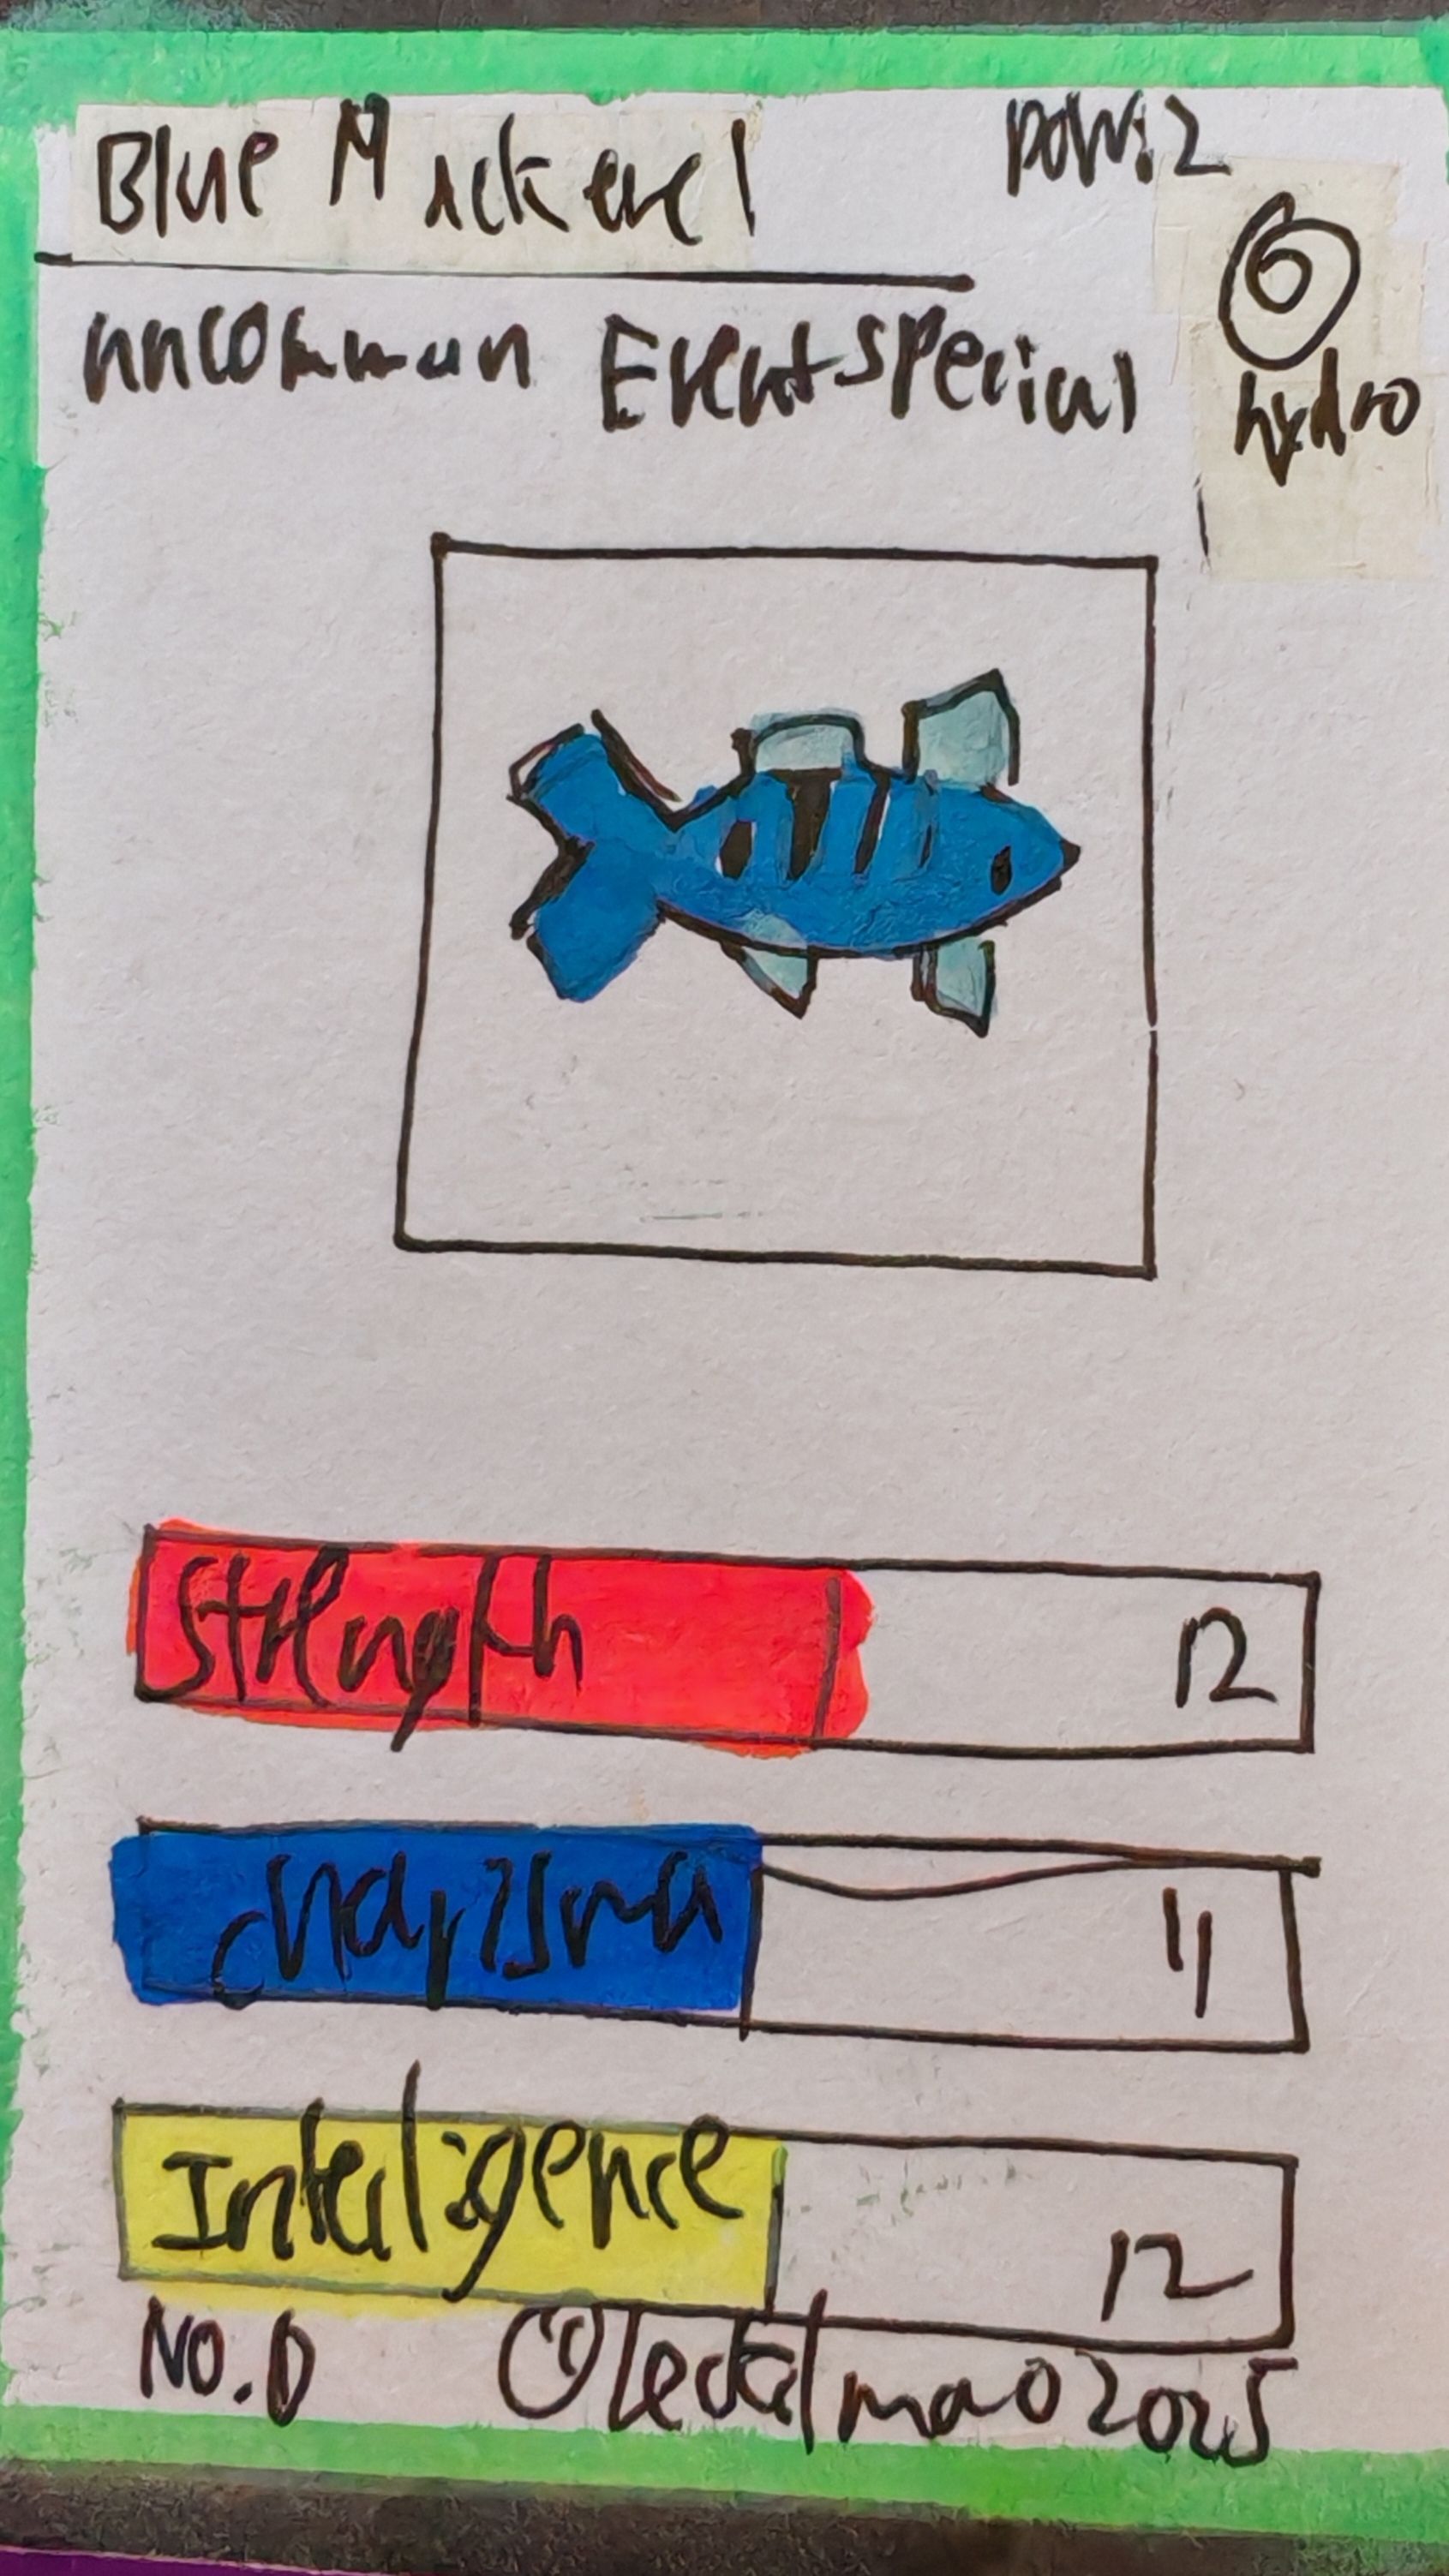 Blue Mackerel
pow:2
6
hydro
uncommon Event special
Strength 12
charisma 11
Inteligence 12
No.0
2025